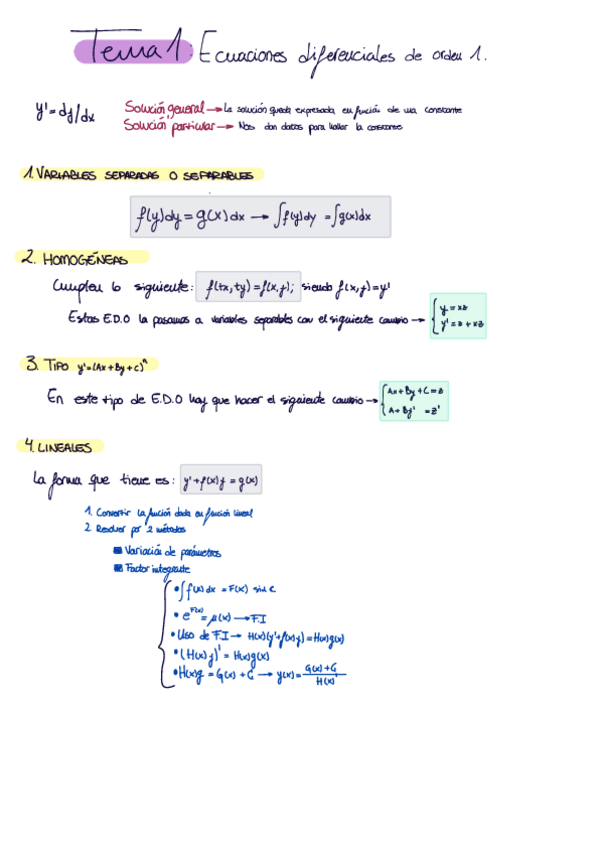 Tema 1: Ecuaciones diferenciales de orden 1.
y' = dy/dx
Solución general → La solución queda expresada en función de una constante
Solución particular → Nos dan datos para hallar la constante
1. VARIABLES SEPARADAS O SEPARABLES
f(y)dy = g(x)dx → ∫f(y)dy = ∫g(x)dx
2. HOMOGÉNEAS
Cumplen lo siguiente: f(tx,ty) = f(x,y); siendo f(x,y) = y'
Estas E.D.O la pasamos a variables separables con el siguiente cambio → { y = xz
y' = z + xz'
3. TIPO y' = (Ax + By + C)^n
En este tipo de E.D.O hay que hacer el siguiente cambio → { Ax + By + C = z
A + By' = z'
4. LINEALES
La forma que tiene es: y' + f(x)y = g(x)
1. Convertir la función dada en función lineal
2. Resolver por 2 métodos
Variación de parámetros
Factor integrante
• ∫f(x)dx = F(x) sin C
• e^F(x) = μ(x) → F.I
• Uso de F.I → H(x)(y' + f(x)y) = H(x)g(x)
• (H(x)y)' = H(x)g(x)
• H(x)y = G(x) + C → y(x) = G(x) + C / H(x)